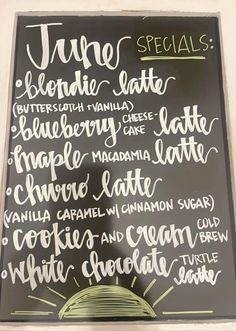 June SPECIALS:
• blondie latte
(BUTTERSCOTCH + VANILLA)
• blueberry CHEESE-CAKE latte
• maple MACADAMIA latte
• churro latte
(VANILLA CARAMEL W/ CINNAMON SUGAR)
• cookies AND cream COLD BREW
• white chocolate TURTLE latte